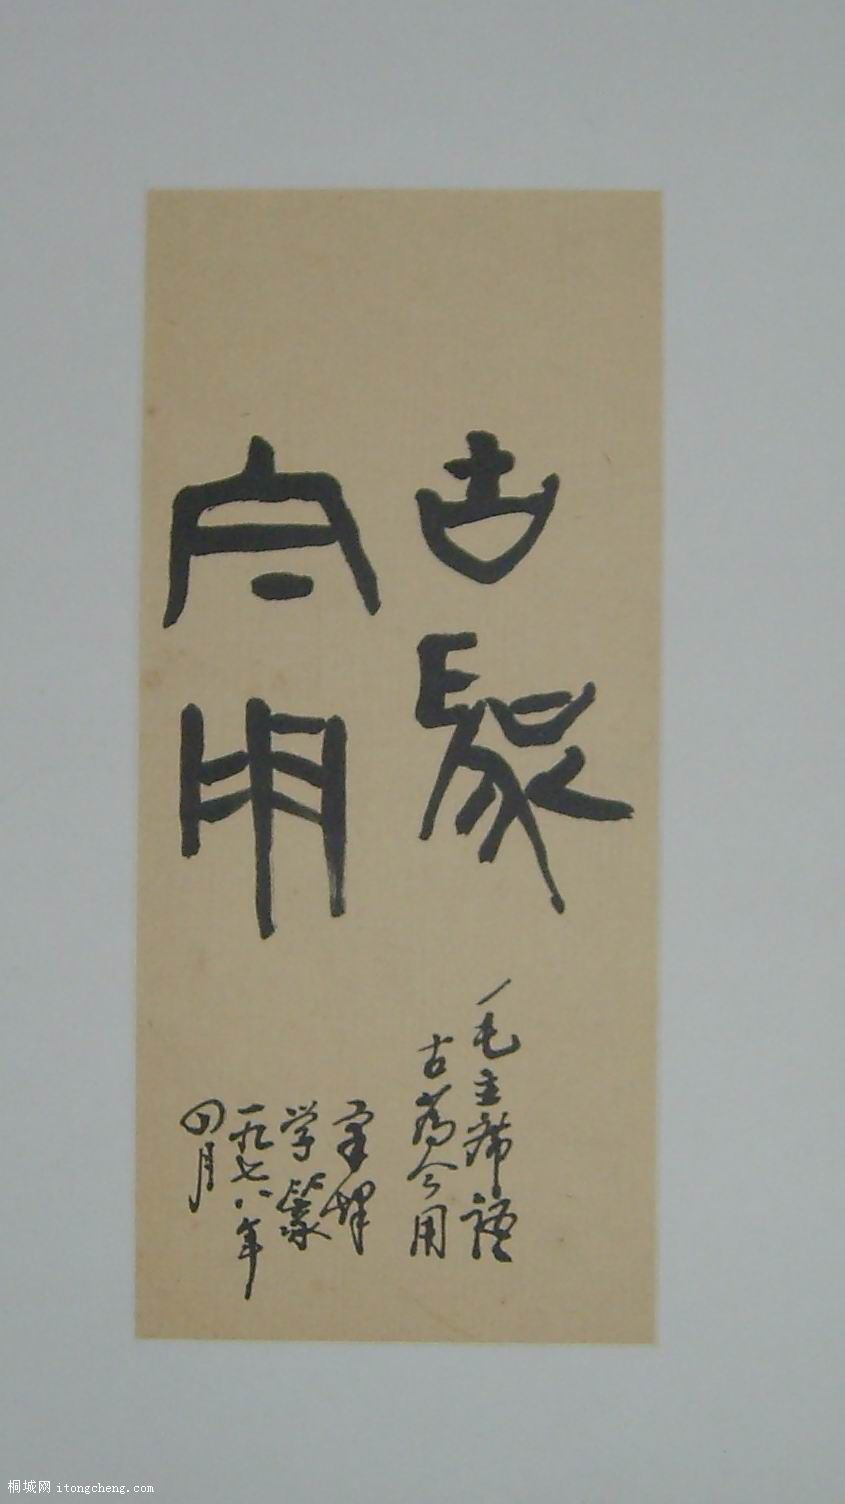 古為
今用
毛主席語
古為今用
学篆
一九七八年
四月
桐城网 itongcheng.com